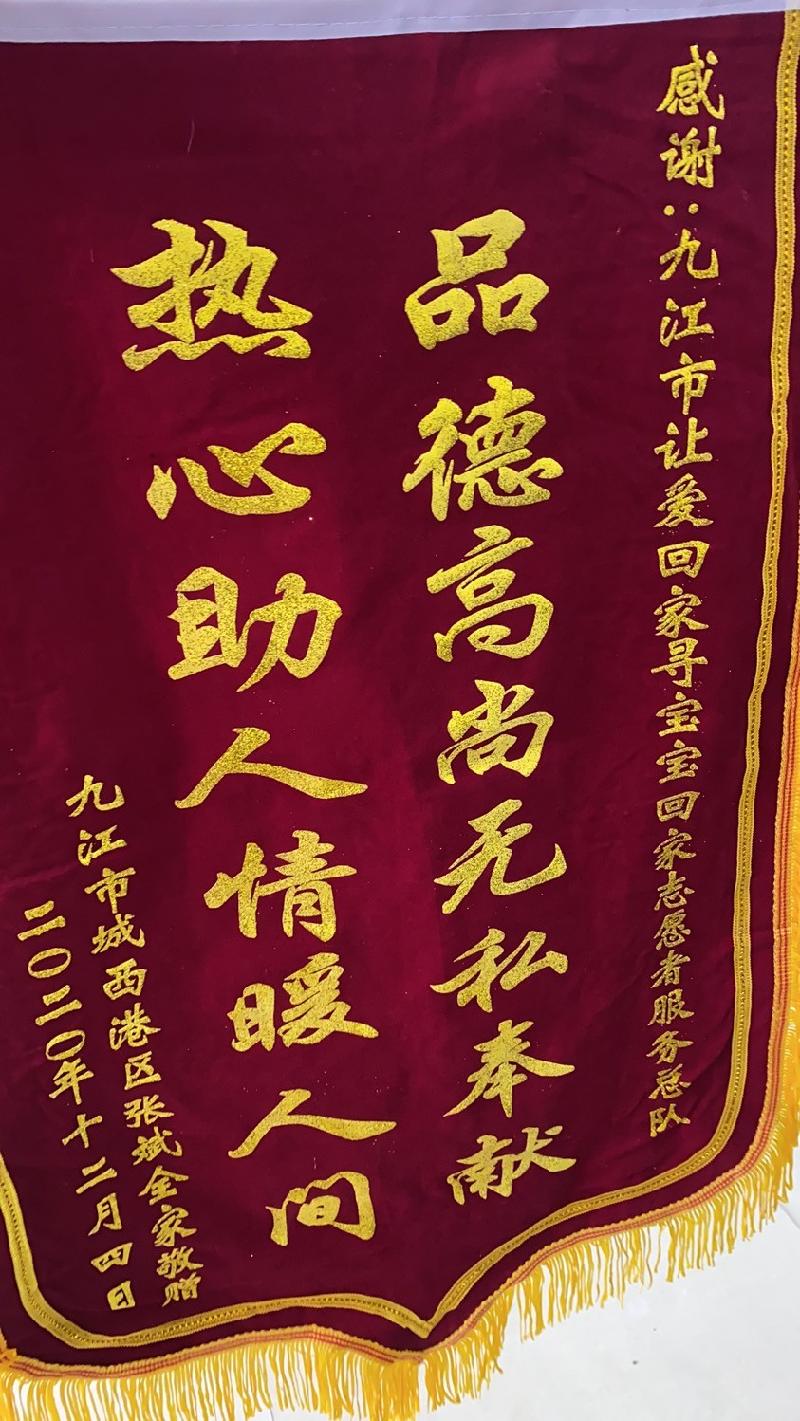 感谢：九江市让爱回家寻宝宝回家志愿者服务总队
品德高尚无私奉献
热心助人情暖人间
九江市城西港区张斌全家敬赠
二〇二〇年十二月四日